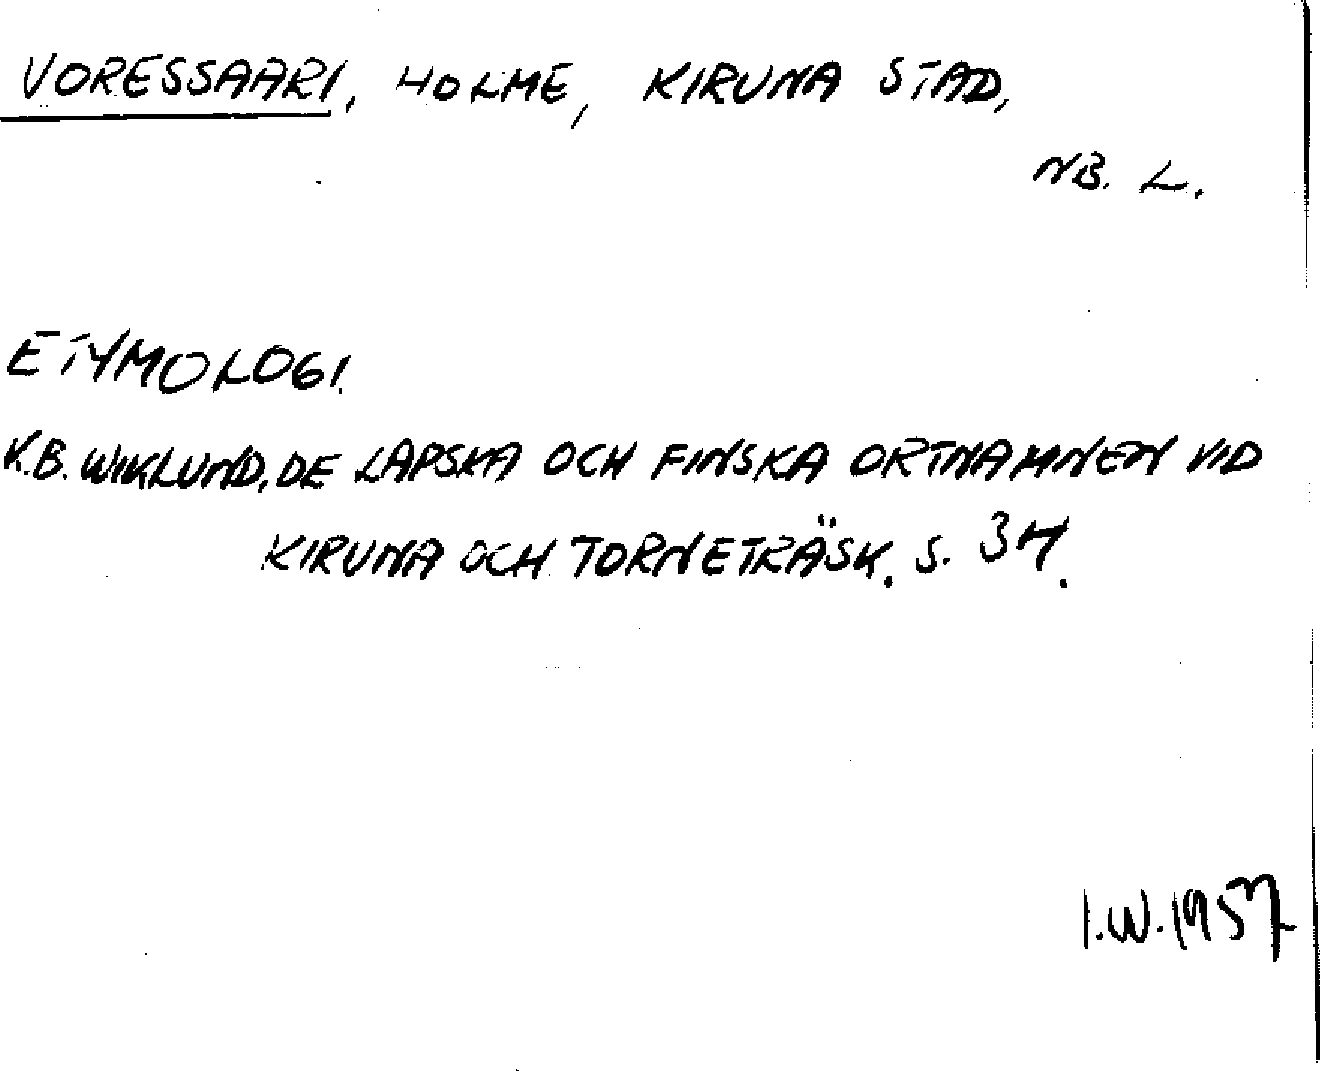 VORESSAARI, HOLME, KIRUNA STAD,
NB. L.
ETYMOLOGI.
K.B. WIKLUND, DE LAPSKA OCH FINSKA ORTNAMNEN VID
KIRUNA OCH TORNETRÄSK. S. 34.
I.W. 1957